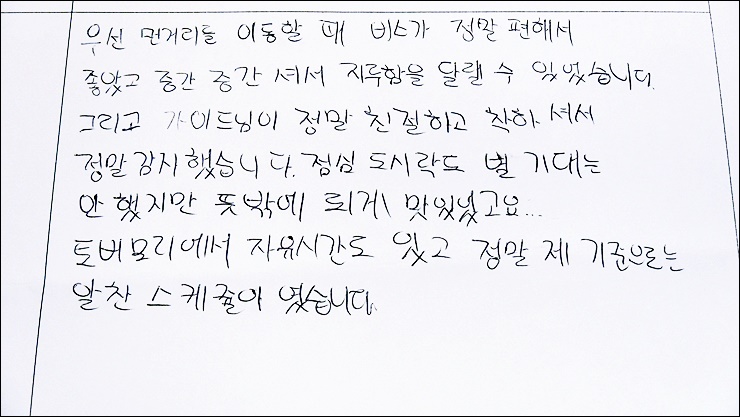 우선 먼거리를 이동할 때 버스가 정말 편해서
좋았고 중간 중간 셔서 지루함을 달랠 수 있었습니다.
그리고 가이드님이 정말 친절하고 착하셔서
정말 감사했습니다. 점심 도시락도 별 기대는
안 했지만 뜻밖에 되게 맛있었고요...
토버모리에서 자유시간도 있고 정말 제 기준으로는
알찬 스케쥴이였습니다.